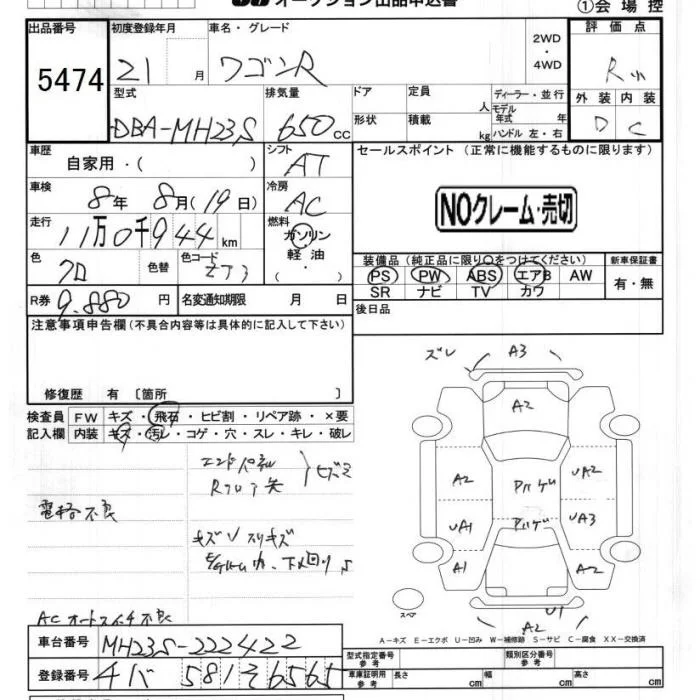 オークション出品申込書
①会場控
出品番号 初度登録年月 車名・グレード 2WD・4WD 評価点
5474 21 月 ワゴンR R
外装 内装
D C
型式 排気量 ドア 定員 人 ディーラー・並行
DBA-MH23S 650cc 形状 積載 kg モデル年式 年 ハンドル 左・右
車歴 シフト セールスポイント (正常に機能するものに限ります)
自家用・( ) AT
車検 冷房
8年 8月(19日) AC
NOクレーム・売切
走行 燃料
11万0千944km ガソリン・軽油・( )
色 色替 色コード 装備品(純正品に限り〇をつけてください) 新車保証書
クロ ZJ3 PS PW ABS エアB AW 有・無
SR ナビ TV カワ
R券 9.880円 名変通知期限 月 日 後日品
注意事項申告欄(不具合内容等は具体的に記入して下さい)
修復歴 有〔箇所 〕
検査員 FW キズ・飛石・ヒビ割・リペア跡・×要
記入欄 内装 キズ・汚レ・コゲ・穴・スレ・キレ・破レ
ズレ A3
A2
A2 パハゲ UA2
UA1 パハゲ UA3
A1 A2
U1
A2
スペア
エンドパネル
ヒズミ
電格不良
キズ スリキズ
下メ回りS
ACオートスイッチ不良
A-キズ E-エクボ U-凹み W-補修跡 S-サビ C-腐食 XX-交換済
車台番号 MH23S-222422 型式指定番号 参考 類別区分番号 参考
登録番号 チバ 581 そ 6565 車庫証明用 参考 長さ cm 幅 cm 高さ cm